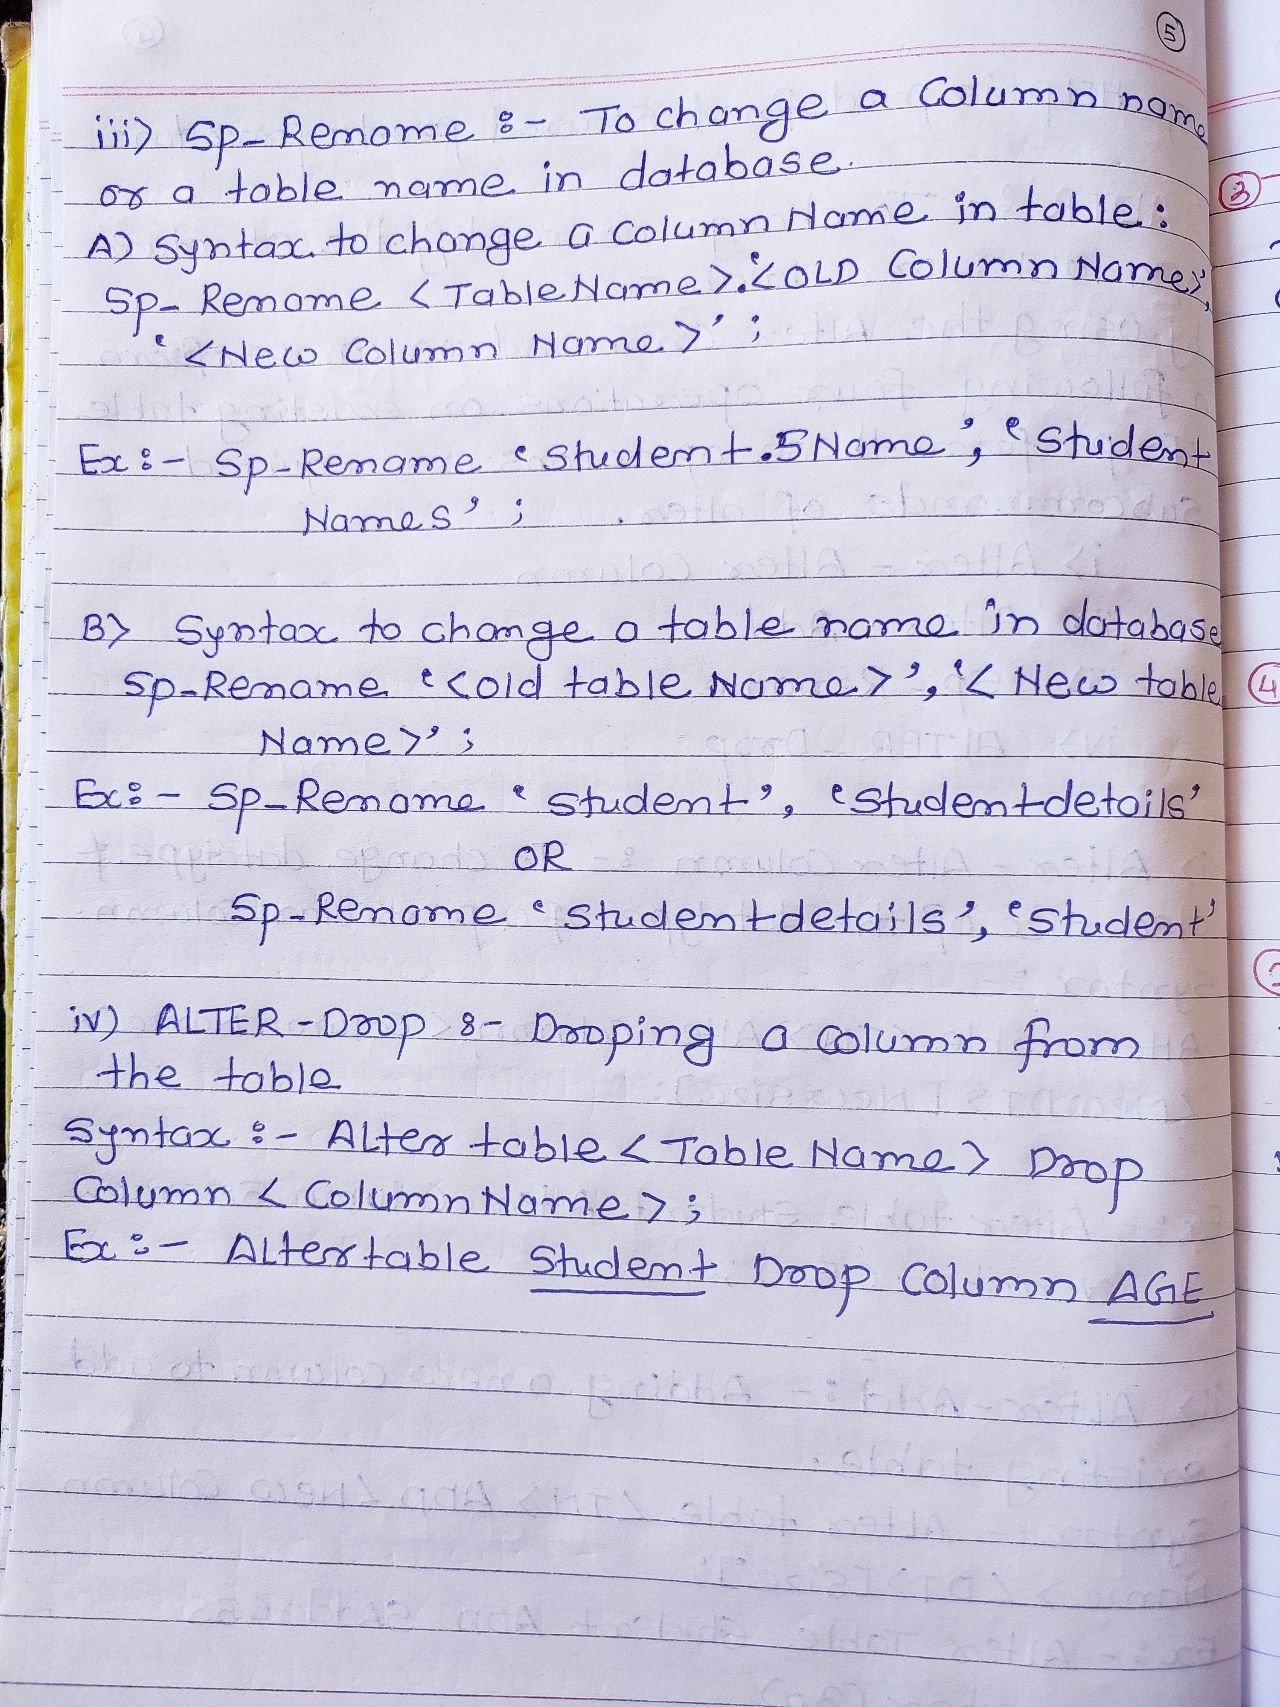 5
iii) Sp-Rename :- To change a Column name
or a table name in database.
A) Syntax to change a Column Name in table:
Sp-Rename <TableName>.'<OLD Column Name>',
'<New Column Name>' ;
Ex:- Sp-Rename 'Student.SName', 'Student
Names' ;
B) Syntax to change a table name in database
Sp-Rename '<old table Name>', '<New table
Name>' ;
Ex:- Sp-Rename 'Student', 'Studentdetails'
OR
Sp-Rename 'Studentdetails', 'Student'
iv) ALTER-Drop :- Droping a column from
the table
Syntax :- Alter table <Table Name> Drop
Column <Column Name> ;
Ex:- Alter table Student Drop Column AGE